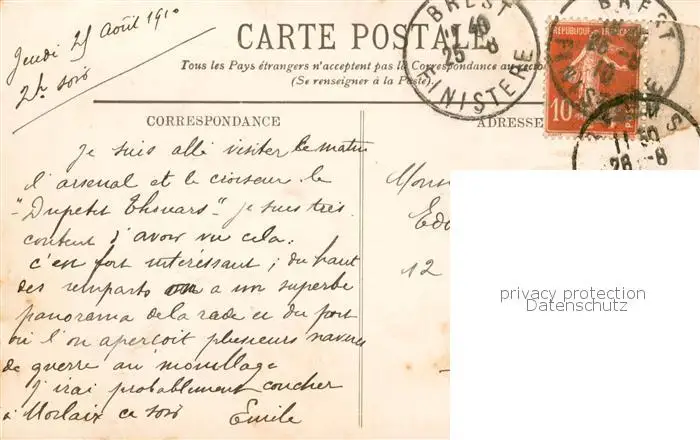 Jeudi 25 Août 1910
2h soir
CARTE POSTALE
Tous les Pays étrangers n'acceptent pas la Correspondance au recto
(Se renseigner à la Poste).
BREST
11 40
25 8
FINISTERE
BREST
FINIS
REPUBLIQUE FRANCAISE
10
11 30
28 8
CORRESPONDANCE
ADRESSE
Je suis allé visiter ce matin
l'arsenal et le croiseur le
"Dupetit Thouars" je suis très
content d'avoir vu cela.
c'en fort intéressant ; du haut
des remparts on a un superbe
panorama de la rade et du port
où l'on aperçoit plusieurs navires
de guerre au mouillage
J'irai probablement coucher
à Morlaix ce soir
Emile
12
privacy protection
Datenschutz